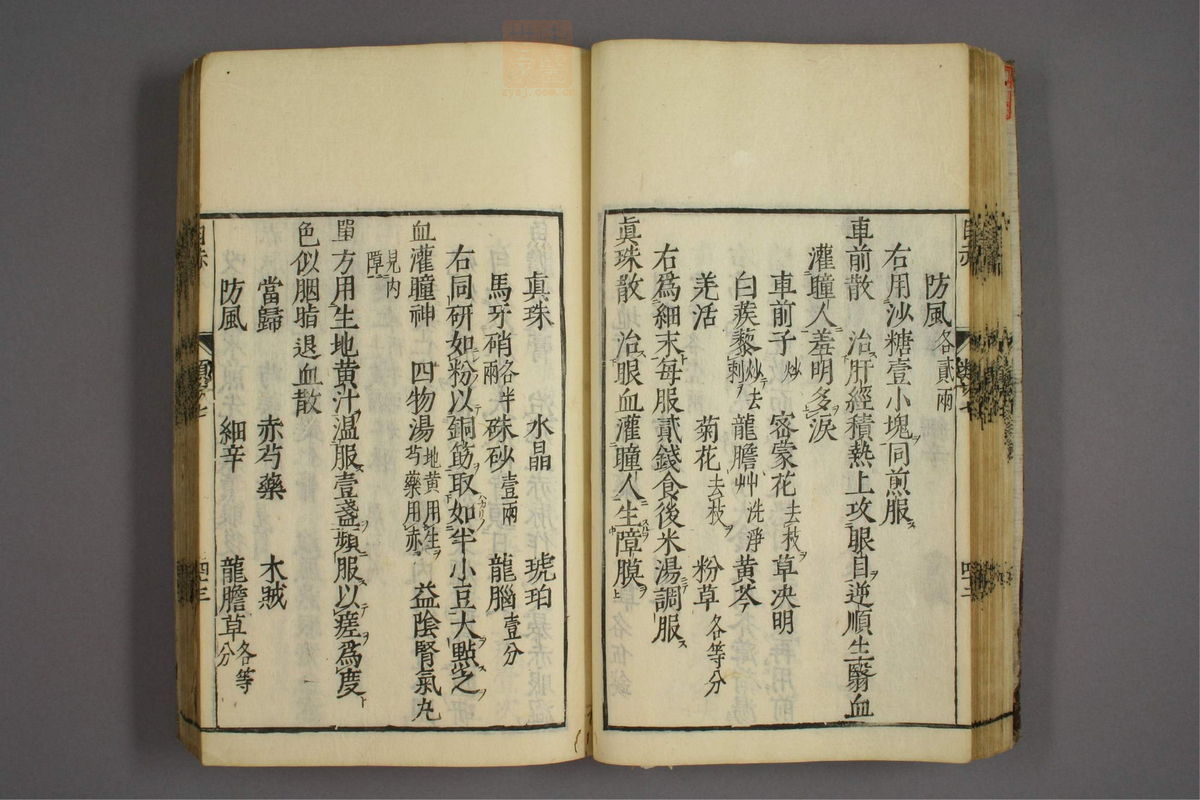 防風各貳兩
右用沙糖壹小塊同煎服
車前散　治肝經積熱上攻眼目逆順生翳血
灌瞳人羞明多淚
車前子炒　密蒙花去枝　草決明
白蒺藜炒去刺　龍膽艸洗淨　黃芩
羌活　菊花去枝　粉草各等分
右爲細末每服貳錢食後米湯調服
眞珠散　治眼血灌瞳人生障膜
眞珠　水晶　琥珀
馬牙硝各半兩　硃砂壹兩　龍腦壹分
右同研如粉以銅筯取如半小豆大點之
血灌瞳神　四物湯地黃用生芍藥用赤　益陰腎氣丸
見內障
單方用生地黃汁溫服壹盞頻服以瘥爲度
色似胭脂退血散
當歸　赤芍藥　木賊
防風　細辛　龍膽草各等分